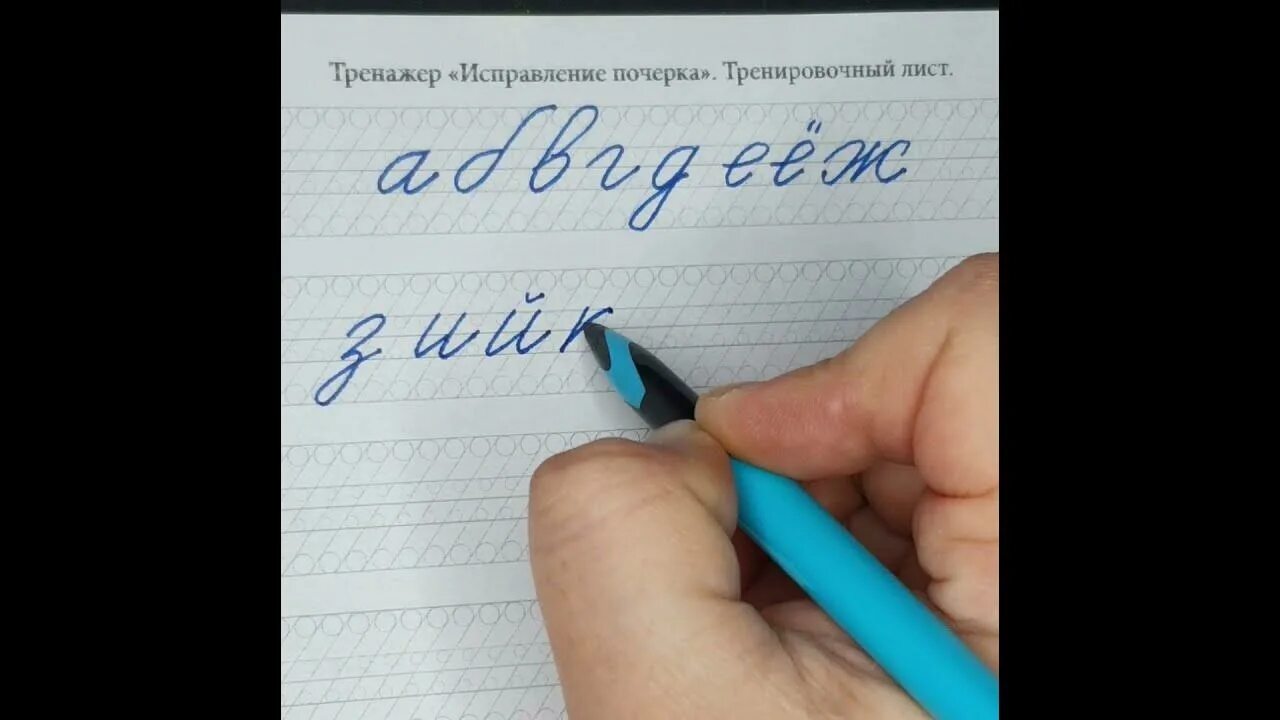 Тренажер «Исправление почерка». Тренировочный лист.
а б в г д е ё ж
з и й к